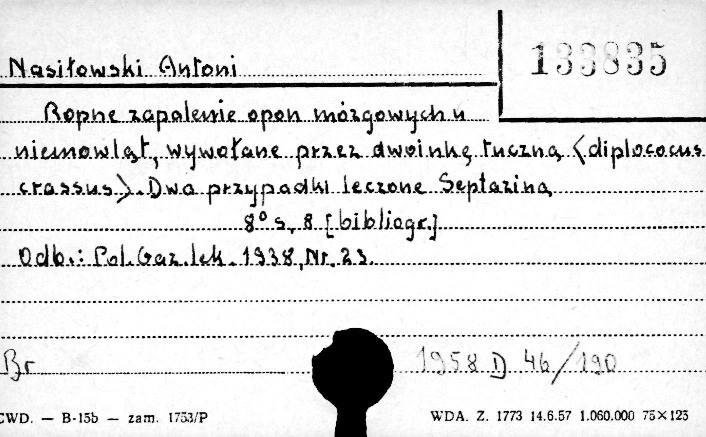 133835
Nasiłowski Antoni
Ropne zapalenie opon mózgowych u
niemowląt, wywołane przez dwoinkę tuczną <diplococus
crassus>. Dwa przypadki leczone Septaziną
8° s. 8 [bibliogr.]
Odb.: Pol. Gaz. lek. 1938, Nr. 23.
Br
1958 D 46/190
CWD. — B-15b — zam. 1753/P
WDA. Z. 1773 14.6.57 1.060.000 75×125